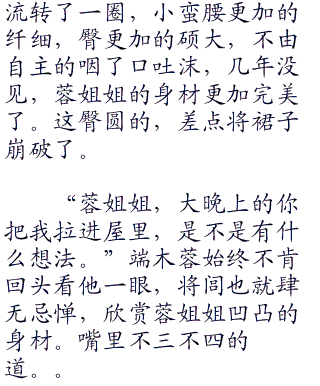 流转了一圈，小蛮腰更加的
纤细，臀更加的硕大，不由
自主的咽了口吐沫，几年没
见，蓉姐姐的身材更加完美
了。这臀圆的，差点将裙子
崩破了。
“蓉姐姐，大晚上的你
把我拉进屋里，是不是有什
么想法。”端木蓉始终不肯
回头看他一眼，将闾也就肆
无忌惮，欣赏蓉姐姐凹凸的
身材。嘴里不三不四的
道。。